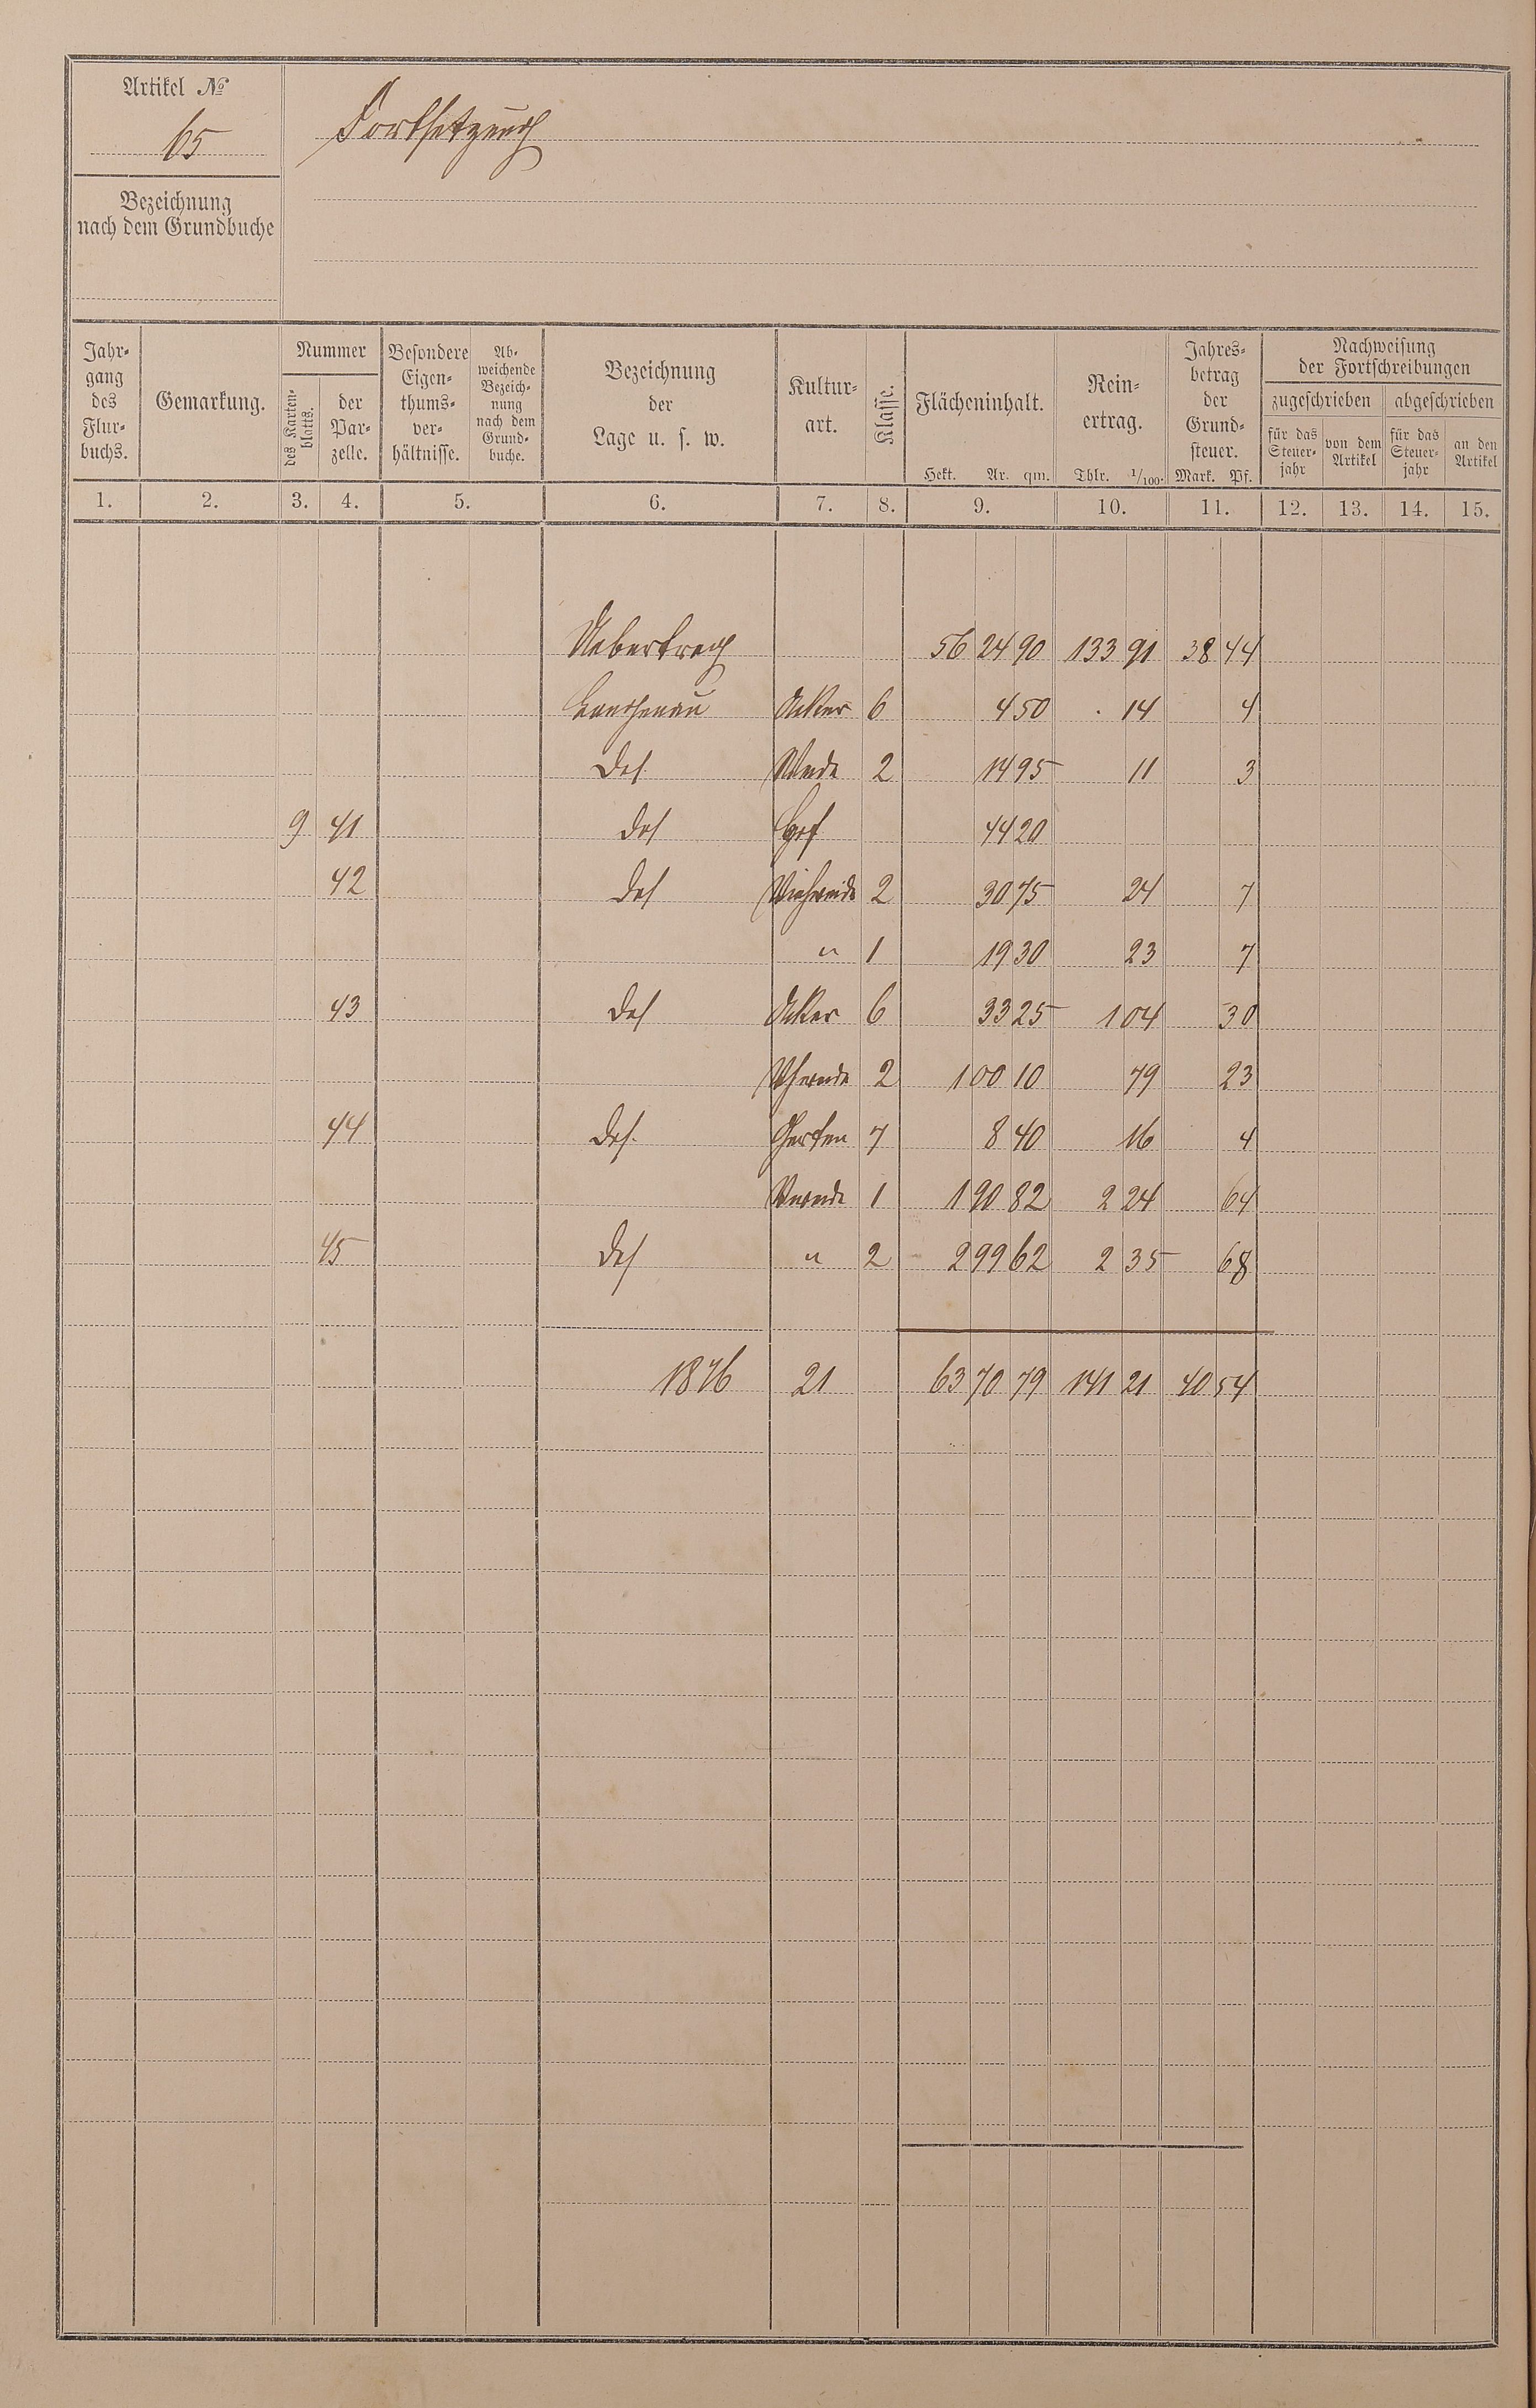 Artikel №
65
Fortsetzung
Bezeichnung
nach dem Grundbuche
Jahr-
gang
des
Flur-
buchs.
Gemarkung.
Nummer
des Karten-
blatts.
der
Par-
zelle.
Besondere
Eigen-
thums-
ver-
hältnisse.
Ab-
weichende
Bezeich-
nung
nach dem
Grund-
buche.
Bezeichnung
der
Lage u. s. w.
Kultur-
art.
Klasse.
Flächeninhalt.
Hekt. Ar. qm.
Rein-
ertrag.
Thlr. 1/100.
Jahres-
betrag
der
Grund-
steuer.
Mark. Pf.
Nachweisung
der Fortschreibungen
zugeschrieben abgeschrieben
für das
Steuer-
jahr
von dem
Artikel
für das
Steuer-
jahr
an den
Artikel
1. 2. 3. 4. 5. 6. 7. 8. 9. 10. 11. 12. 13. 14. 15.
Uebertrag 56 24 90 133 91 38 44
Acker 6 4 50 . 14 4
Des. 2 14 95 11 3
9 41 Des Hof 44 20
42 Des Viehweide 2 30 75 24 7
" 1 19 30 23 7
43 Des Acker 6 33 25 1 04 30
Vhweide 2 1 00 10 79 23
44 Des. Garten 7 8 40 16 4
1 1 90 82 2 24 64
45 Des " 2 2 99 62 2 35 68
1876 21 63 70 79 141 21 40 54